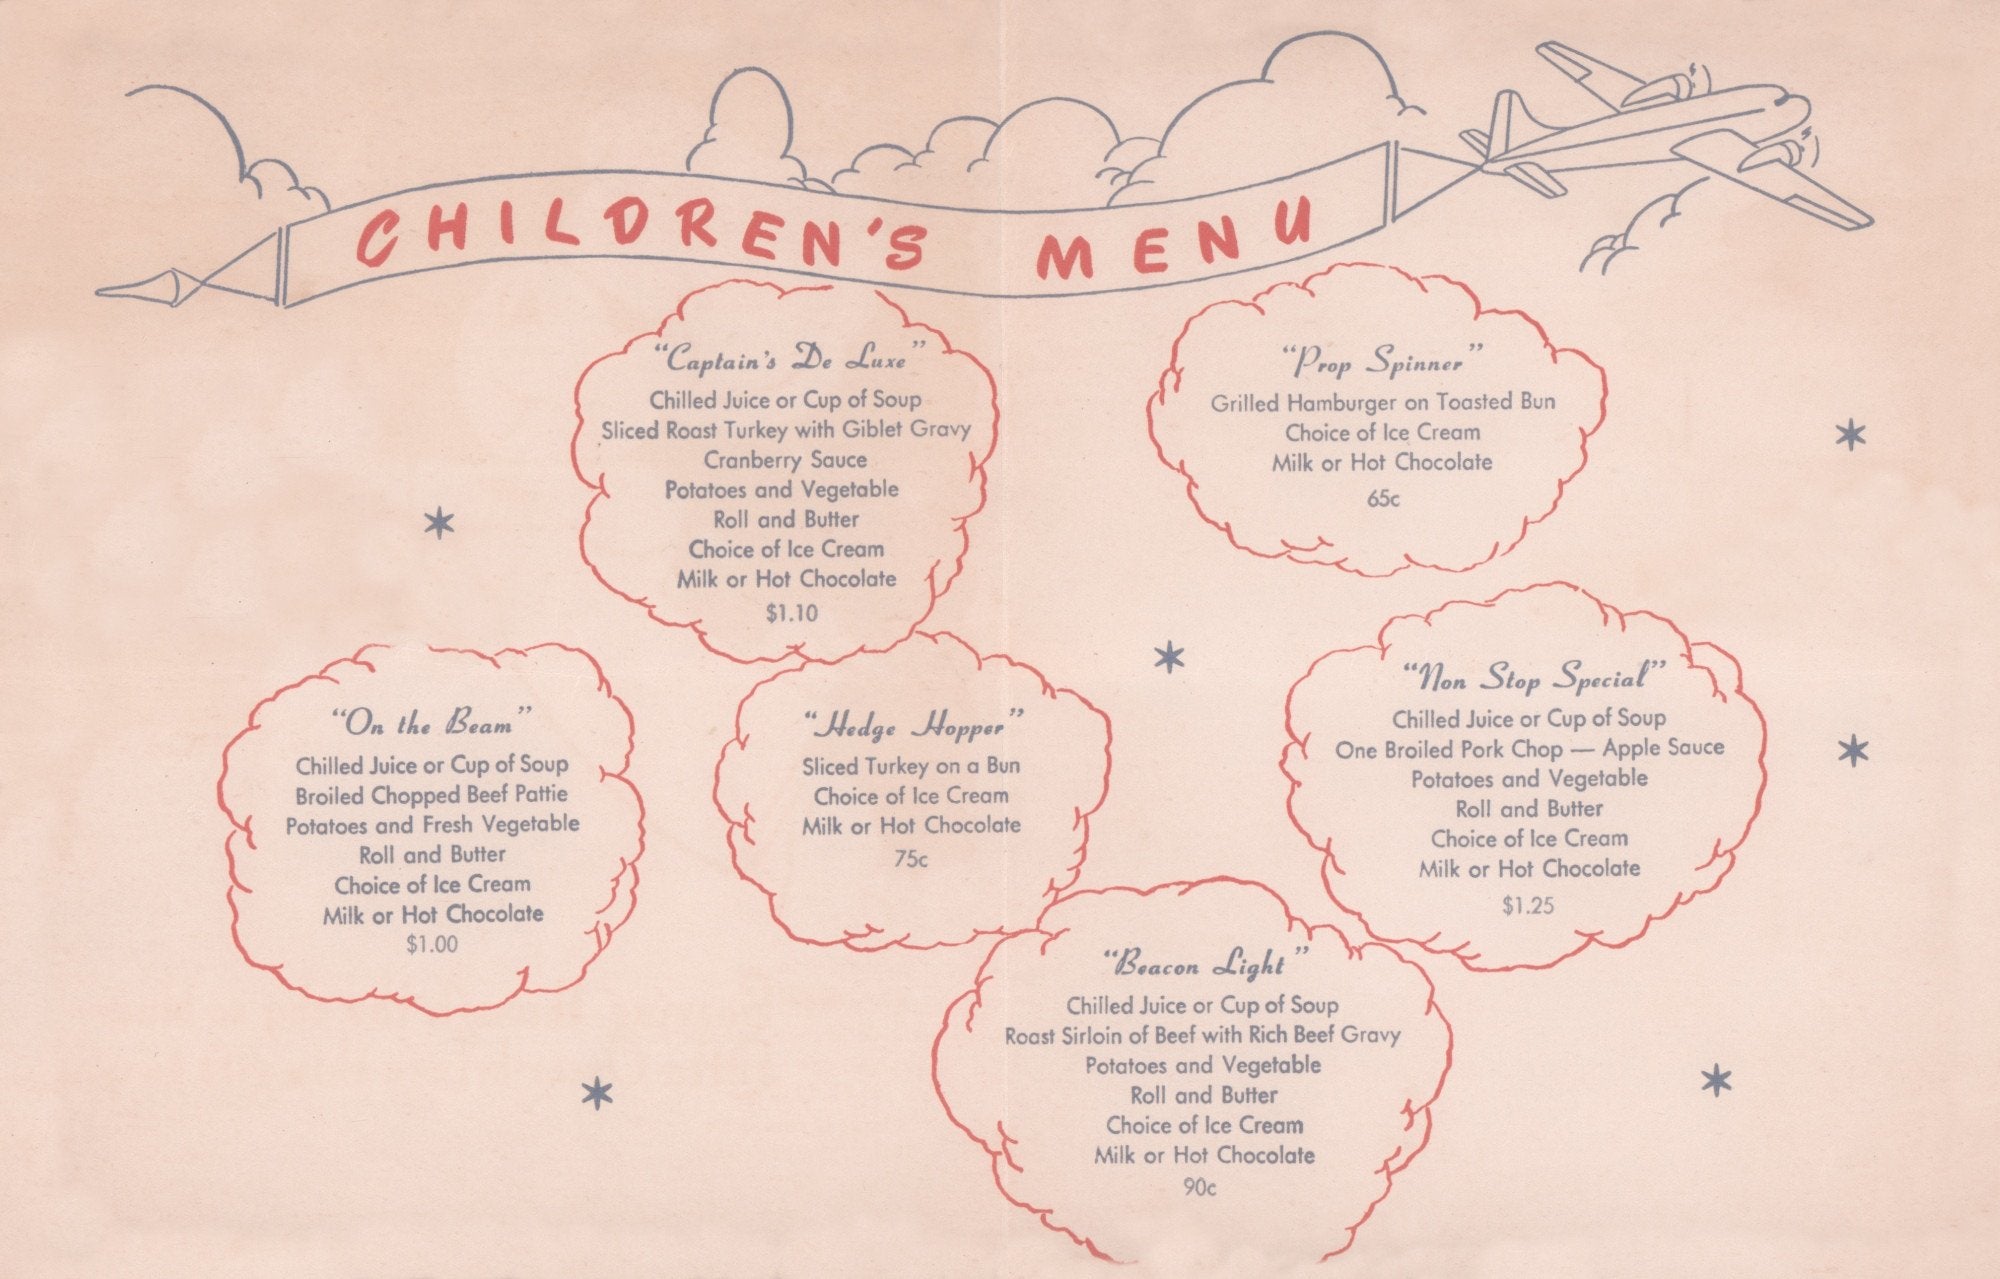 CHILDREN'S MENU
"Captain's De Luxe"
Chilled Juice or Cup of Soup
Sliced Roast Turkey with Giblet Gravy
Cranberry Sauce
Potatoes and Vegetable
Roll and Butter
Choice of Ice Cream
Milk or Hot Chocolate
$1.10
"Prop Spinner"
Grilled Hamburger on Toasted Bun
Choice of Ice Cream
Milk or Hot Chocolate
65c
"On the Beam"
Chilled Juice or Cup of Soup
Broiled Chopped Beef Pattie
Potatoes and Fresh Vegetable
Roll and Butter
Choice of Ice Cream
Milk or Hot Chocolate
$1.00
"Hedge Hopper"
Sliced Turkey on a Bun
Choice of Ice Cream
Milk or Hot Chocolate
75c
"Non Stop Special"
Chilled Juice or Cup of Soup
One Broiled Pork Chop — Apple Sauce
Potatoes and Vegetable
Roll and Butter
Choice of Ice Cream
Milk or Hot Chocolate
$1.25
"Beacon Light"
Chilled Juice or Cup of Soup
Roast Sirloin of Beef with Rich Beef Gravy
Potatoes and Vegetable
Roll and Butter
Choice of Ice Cream
Milk or Hot Chocolate
90c